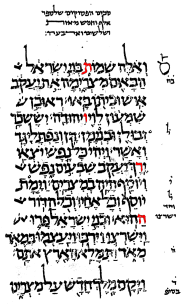 סכום הפסוקים של ספר
אלף וחמש מאות
ושלשים וארבעה׃
ואלה שמות בני ישראל
הבאים מצרימה את יעקב
איש וביתו באו ראובן
שמעון לוי ויהודה יששכר
זבולן ובנימן דן ונפתלי גד
ואשר ויהי כל נפש יצאי
ירך יעקב שבעים נפש
ויוסף היה במצרים וימת
יוסף וכל אחיו וכל הדור
ההוא ובני ישראל פרו
וישרצו וירבו ויעצמו במאד
מאד ותמלא הארץ אתם
ויקם מלך חדש על מצרים